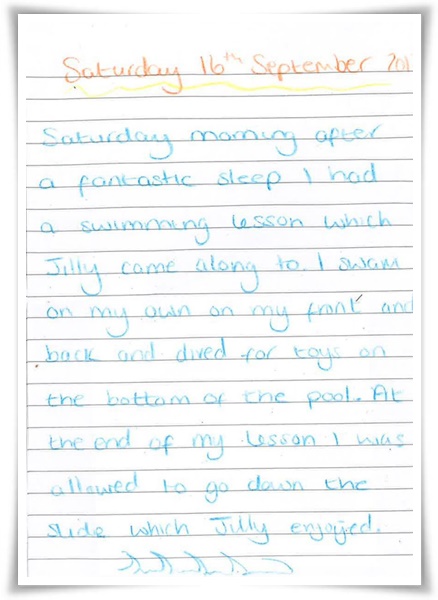 Saturday 16th September 201
Saturday morning after
a fantastic sleep I had
a swimming lesson which
Jilly came along to. I swam
on my own on my front and
back and dived for toys on
the bottom of the pool. At
the end of my lesson I was
allowed to go down the
slide which Jilly enjoyed.